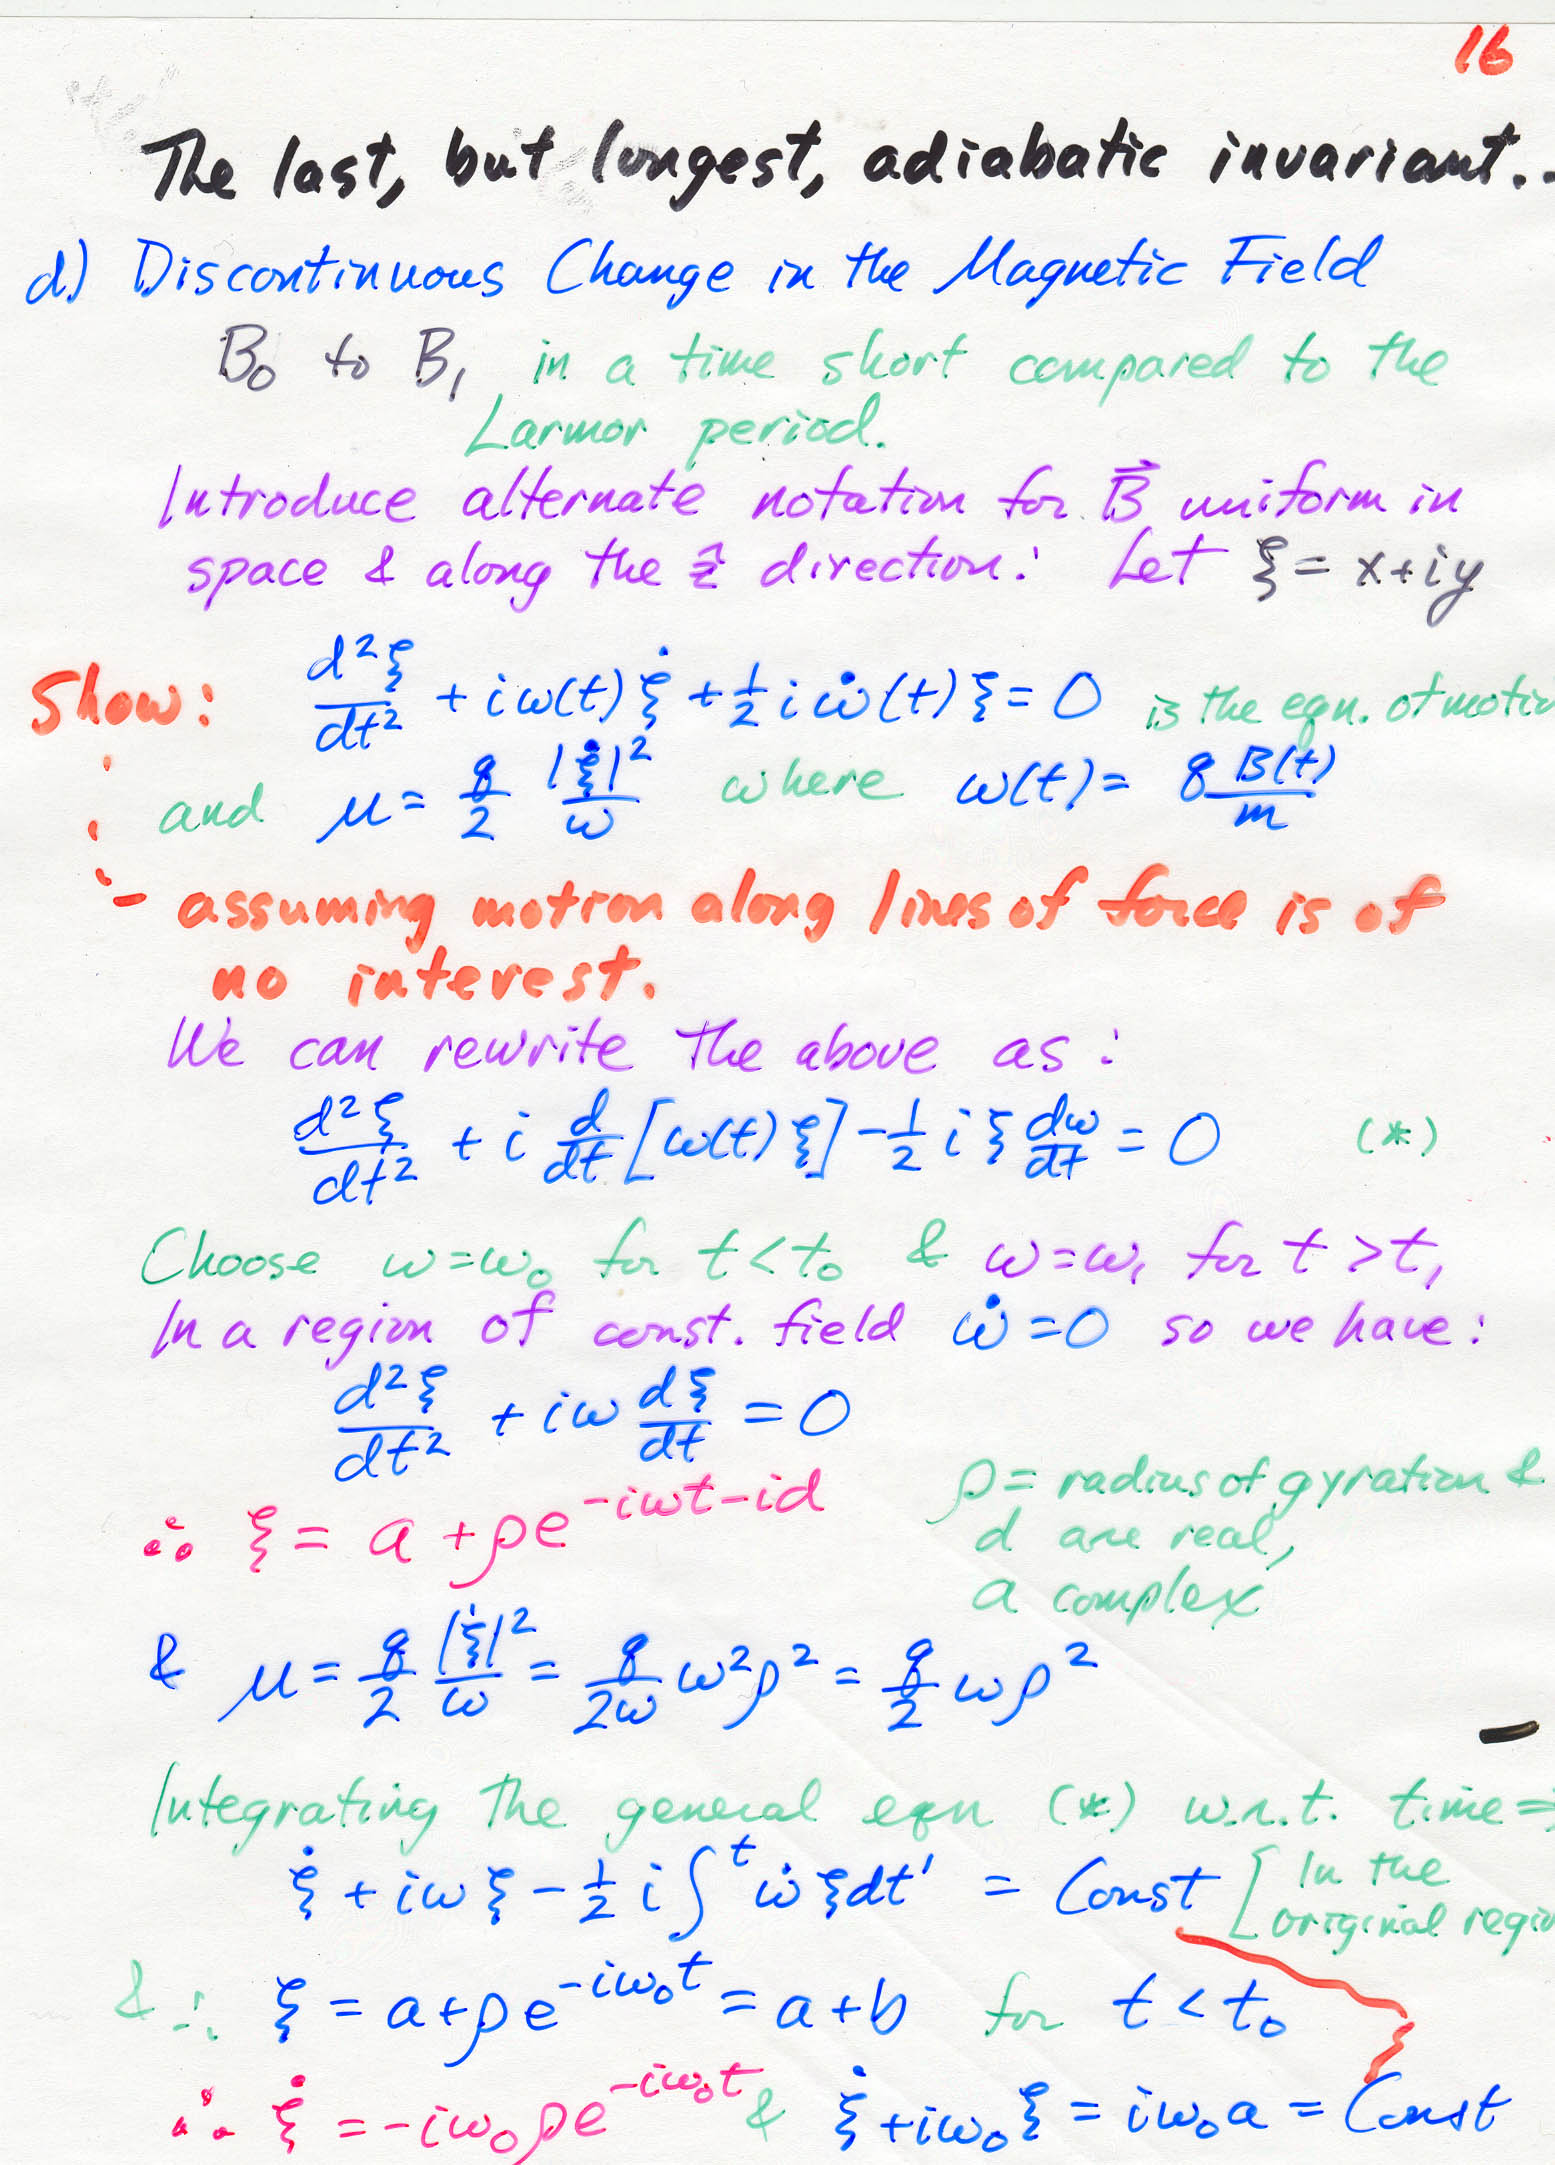 16
The last, but longest, adiabatic invariant..
d.) Discontinuous Change in the Magnetic Field
B₀ to B₁ in a time short compared to the
Larmor period.
Introduce alternate notation for B⃗ uniform in
space & along the ẑ direction: Let ξ = x+iy
Show: d²ξ/dt² + iω(t)ξ̇ + ½ i ω̇(t)ξ = 0 is the eqn. of motio
and μ = q/2 |ξ̇|²/ω where ω(t) = qB(t)/m
- assuming motion along lines of force is of
no interest.
We can rewrite the above as:
d²ξ/dt² + i d/dt [ω(t)ξ] - ½ i ξ dω/dt = 0 (*)
Choose ω=ω₀ for t<t₀ & ω=ω₁ for t>t₁
In a region of const. field ω̇=0 so we have:
d²ξ/dt² + iω dξ/dt = 0
∴ ξ = a + ρe^(-iωt-id) ρ = radius of gyration &
d are real,
a complex
& μ = q/2 |ξ̇|²/ω = q/2ω ω²ρ² = q/2 ωρ²
Integrating the general eqn (*) w.r.t. time ⇒
ξ̇ + iωξ - ½ i ∫ᵗ ω̇ξdt' = Const [In the
original regio
& ∴ ξ = a+ρe^(-iω₀t) = a+b for t<t₀
∴ ξ̇ = -iω₀ρe^(-iω₀t) & ξ̇+iω₀ξ = iω₀a = Const